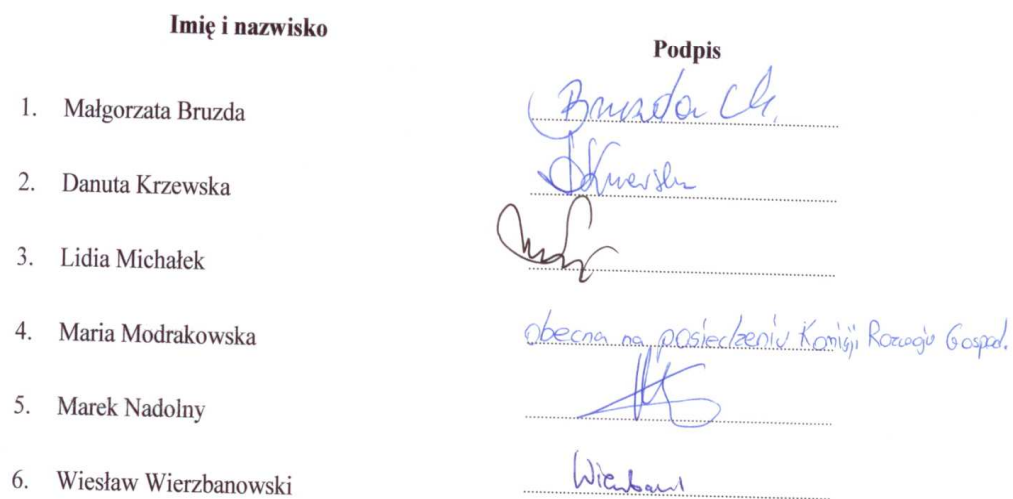 Imię i nazwisko
Podpis
1. Małgorzata Bruzda
Bruzda M.
2. Danuta Krzewska
DKrzewska
3. Lidia Michałek
4. Maria Modrakowska
obecna na posiedzeniu Komisji Rozwoju Gospod.
5. Marek Nadolny
6. Wiesław Wierzbanowski